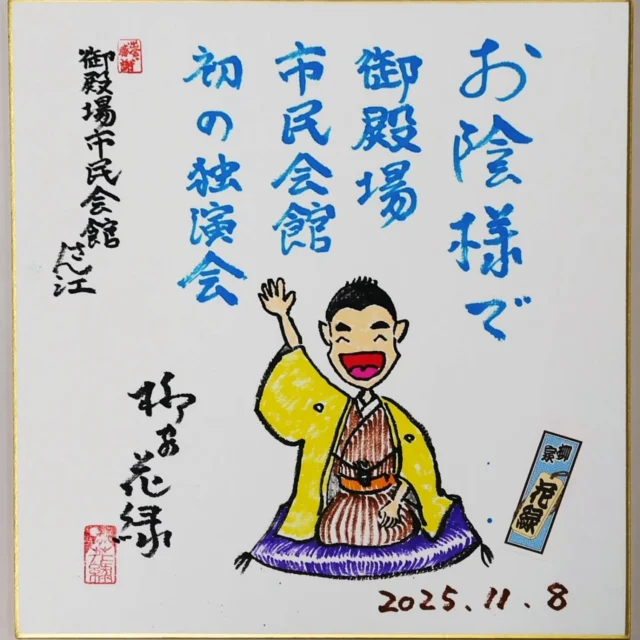 お陰様で
御殿場
市民会館
初の独演会
御殿場市民会館
さん江
柳家花緑
柳家
花緑
2025.11.8